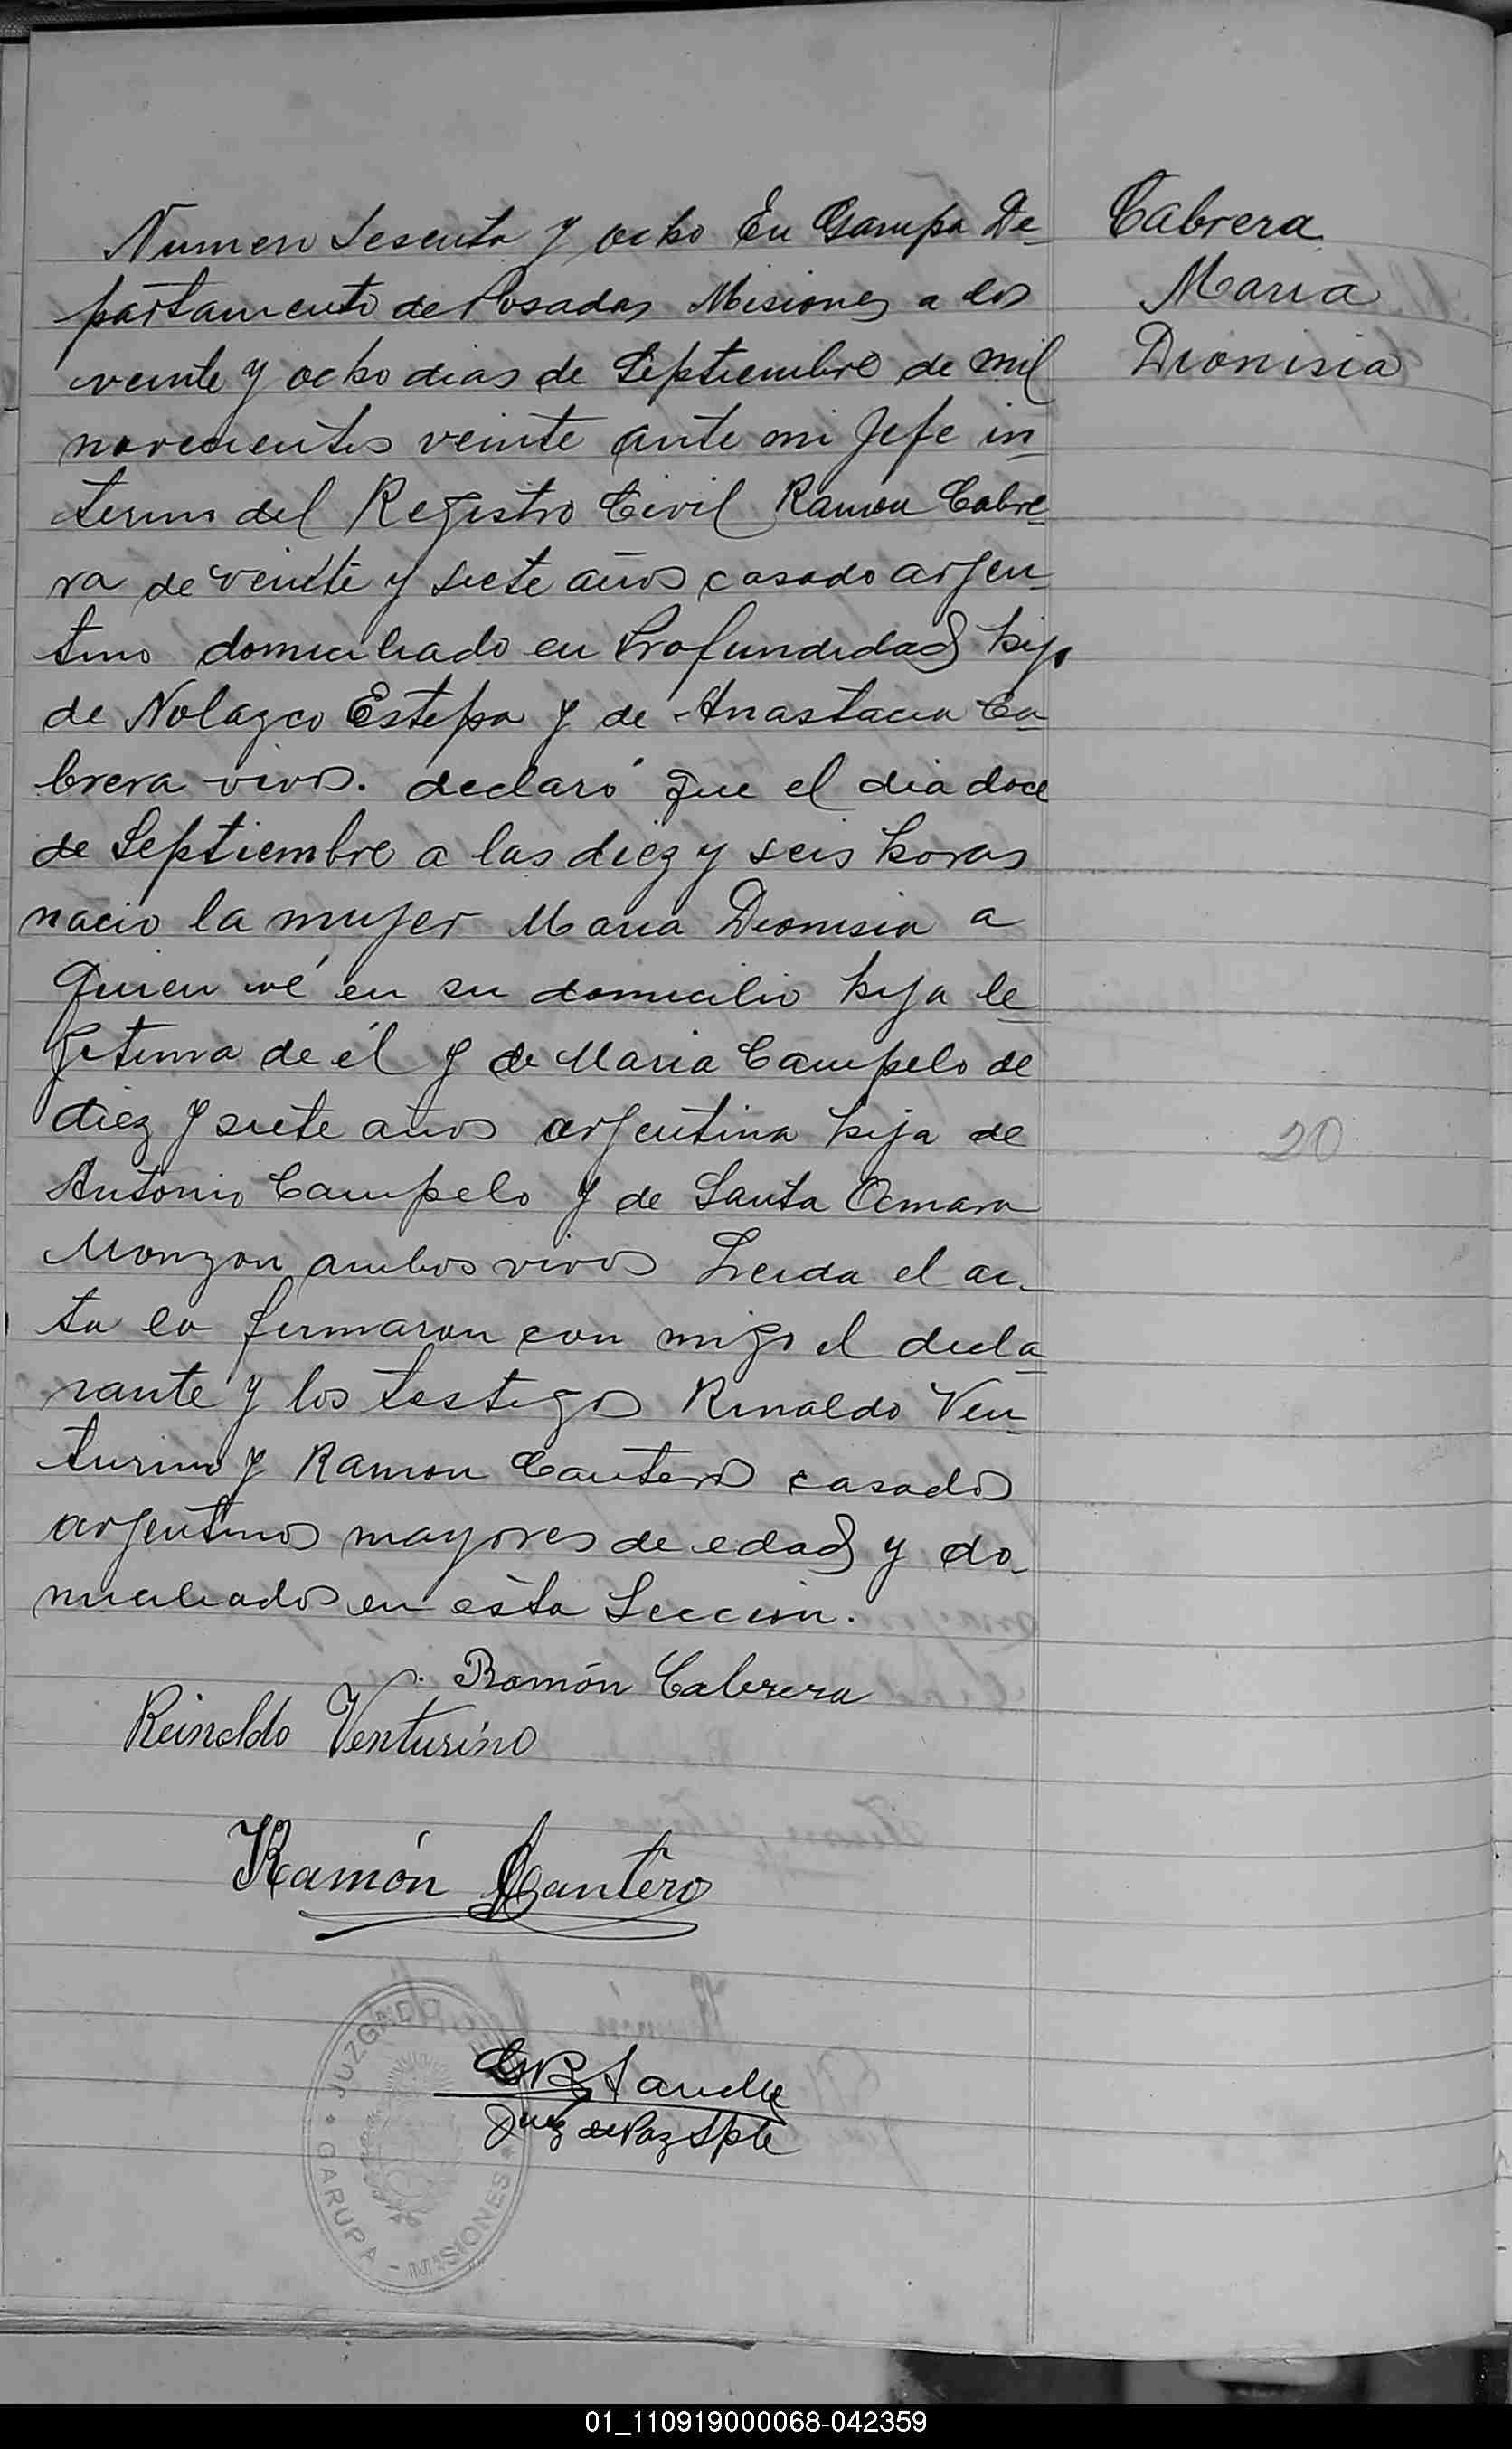 Numero Sesenta y ocho En Garupa De-
partamento de Posadas Misiones a los
veinte y ocho dias de Septiembre de mil
novecientos veinte ante mi Jefe in-
terino del Registro Civil Ramon Cabre-
ra de veinte y siete años casado argen-
tino domiciliado en Profundidad hijo
de Nolazco Estepa y de Anastacia Ca-
brera vivos. declaró que el dia doce
de Septiembre a las diez y seis horas
nacio la mujer Maria Dionisia a
quien vé en su domicilio hija le-
jitima de él y de Maria Campelo de
diez y siete años argentina hija de
Antonio Campelo y de Santa
Monzon ambos vivos Leida el ac-
ta la firmaron con migo el decla-
rante y los testigos Rinaldo Ven-
turino y Ramon Cantero casados
argentinos mayores de edad y do-
miciliados en ésta Seccion.
Ramón Cabrera
Reinaldo Venturino
Ramón Cantero
Juez de Paz Splte
JUZGADO
GARUPA - MISIONES
Cabrera
Maria
Dionisia
20
01_110919000068-042359